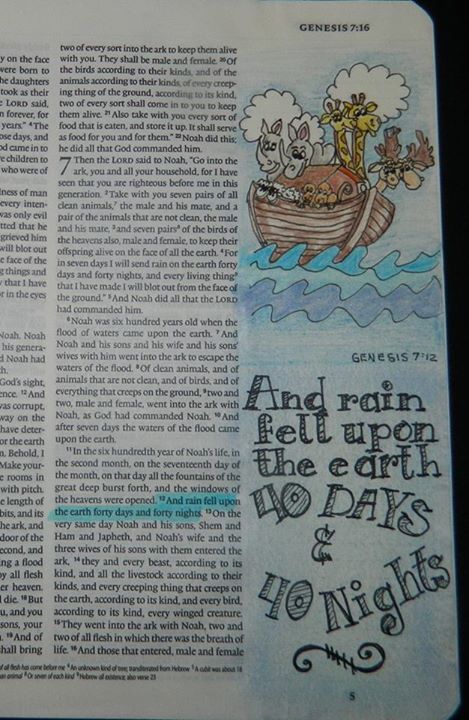 GENESIS 7:16
y on the face
were born to
he daughters
took as their
LORD said,
n forever, for
years." ⁴The
ose days, and
od came in to
e children to
who were of
lness of man
every inten-
was only evil
tted that he
grieved him
will blot out
e face of the
g things and
that I have
or in the eyes
Noah. Noah
his genera-
d Noah had
h.
God's sight,
ence. ¹²And
was corrupt,
way on the
have deter-
or the earth
m. Behold, I
Make your-
e rooms in
with pitch.
e length of
bits, and its
he ark, and
door of the
econd, and
ing a flood
y all flesh
er heaven.
l die. ¹⁸But
u, and you
sons, your
. ¹⁹And of
hall bring
two of every sort into the ark to keep them alive
with you. They shall be male and female. ²⁰Of
the birds according to their kinds, and of the
animals according to their kinds, of every creep-
ing thing of the ground, according to its kind,
two of every sort shall come in to you to keep
them alive. ²¹Also take with you every sort of
food that is eaten, and store it up. It shall serve
as food for you and for them." ²²Noah did this;
he did all that God commanded him.
7 Then the LORD said to Noah, "Go into the
ark, you and all your household, for I have
seen that you are righteous before me in this
generation. ²Take with you seven pairs of all
clean animals,⁷ the male and his mate, and a
pair of the animals that are not clean, the male
and his mate, ³and seven pairs⁸ of the birds of
the heavens also, male and female, to keep their
offspring alive on the face of all the earth. ⁴For
in seven days I will send rain on the earth forty
days and forty nights, and every living thing⁹
that I have made I will blot out from the face of
the ground." ⁵And Noah did all that the LORD
had commanded him.
⁶Noah was six hundred years old when the
flood of waters came upon the earth. ⁷And
Noah and his sons and his wife and his sons'
wives with him went into the ark to escape the
waters of the flood. ⁸Of clean animals, and of
animals that are not clean, and of birds, and of
everything that creeps on the ground, ⁹two and
two, male and female, went into the ark with
Noah, as God had commanded Noah. ¹⁰And
after seven days the waters of the flood came
upon the earth.
¹¹In the six hundredth year of Noah's life, in
the second month, on the seventeenth day of
the month, on that day all the fountains of the
great deep burst forth, and the windows of
the heavens were opened. ¹²And rain fell upon
the earth forty days and forty nights. ¹³On the
very same day Noah and his sons, Shem and
Ham and Japheth, and Noah's wife and the
three wives of his sons with them entered the
ark, ¹⁴they and every beast, according to its
kind, and all the livestock according to their
kinds, and every creeping thing that creeps on
the earth, according to its kind, and every bird,
according to its kind, every winged creature.
¹⁵They went into the ark with Noah, two and
two of all flesh in which there was the breath of
life. ¹⁶And those that entered, male and female
of all flesh has come before me ⁴An unknown kind of tree; transliterated from Hebrew ⁵A cubit was about 18
an animal ⁸Or seven of each kind ⁹Hebrew all existence; also verse 23
GENESIS 7:12
And rain
fell upon
the earth
40 DAYS
&
40 Nights
5